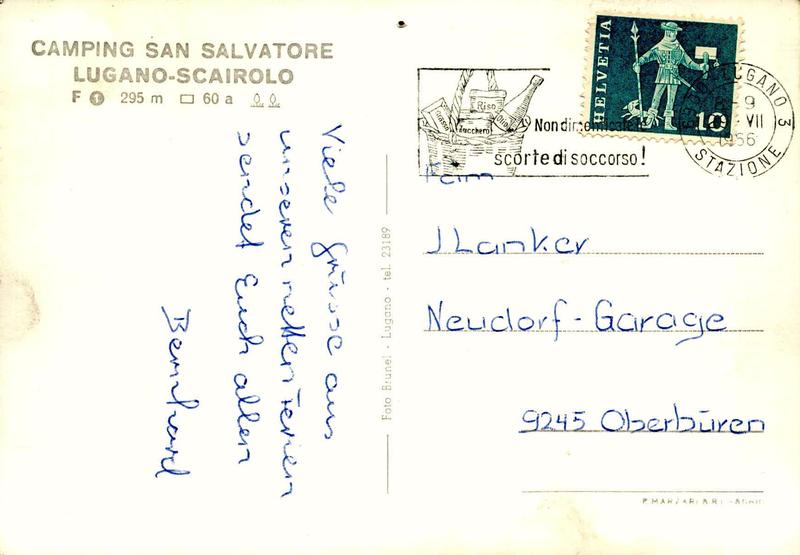 CAMPING SAN SALVATORE
LUGANO-SCAIROLO
F 1 295 m 60 a
Viele Grüsse aus
unseren netten Ferien
sendet Euch allen
Bernhard
Foto Brunel - Lugano - tel. 23189
Riso
Zucchero
Olio
Non dimenticate le
scorte di soccorso!
HELVETIA
10
LUGANO 3
8-9
VII
1966
STAZIONE
Fam
J Lanker
Neudorf-Garage
9245 Oberbüren